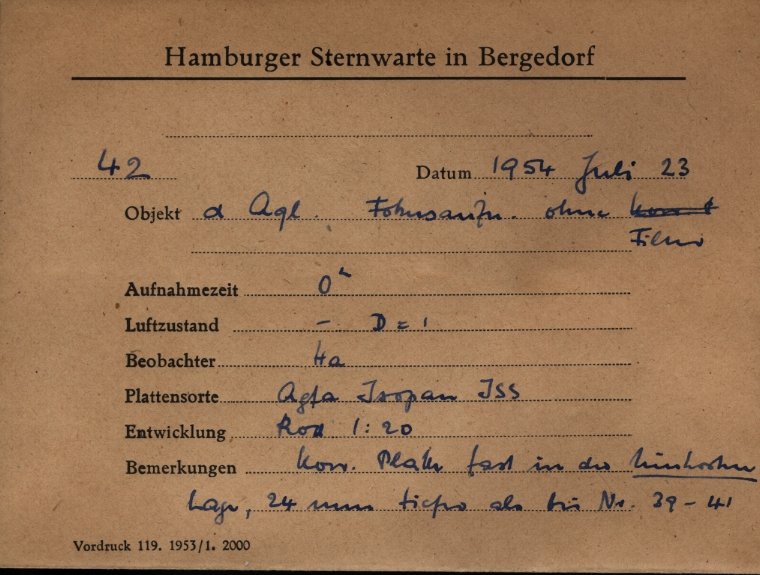 Hamburger Sternwarte in Bergedorf
42 Datum 1954 Juli 23
Objekt α Aql. Fokusaufn. ohne
Film
Aufnahmezeit 0h
Luftzustand – D = 1
Beobachter Ha
Plattensorte Agfa Isopan ISS
Entwicklung Rod 1:20
Bemerkungen Korr. Platte fast in der
Lage, 24 mm tiefer als bei Nr. 39 – 41
Vordruck 119. 1953/1. 2000